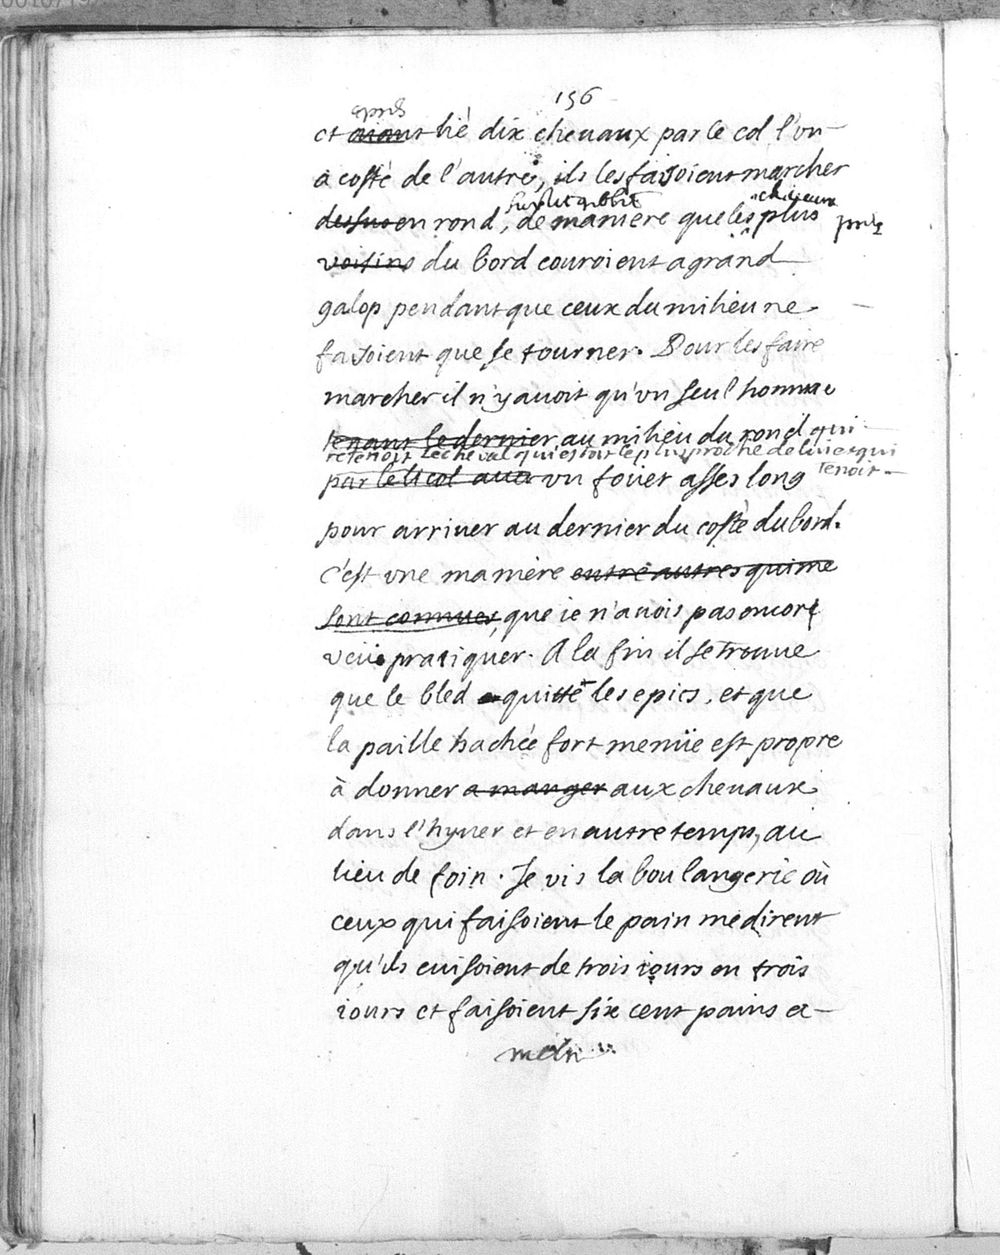 156
après
et aiant lié dix cheuaux par le col l'vn
à costé de l'autre, ils les faisoient marcher
cheuaux
dessus en rond, de maniere que les plus près
voisins du bord couroient a grand
galop pendant que ceux du milieu ne
faisoient que se tourner. Pour les faire
marcher il n'y auoit qu'vn seul homme
tenant le dernier au milieu du rond qui
retenoit le cheval qui estoit le plus proche de luy et qui
par le licol auec vn foüet asses long tenoit
pour arriuer au dernier du costé du bord.
C'est vne maniere entre autres qui me
sont connues, que ie n'auois pas encore
veüe pratiquer. A la fin il se trouue
que le bled a quitté les epics, et que
la paille hachée fort menüe est propre
à donner a manger aux cheuaux
dans l'hyuer et en autre temps, au
lieu de foin. Je vis la boulangerie où
ceux qui faisoient le pain me dirent
qu'ils cuisoient de trois iours en trois
iours et faisoient six cent pains a